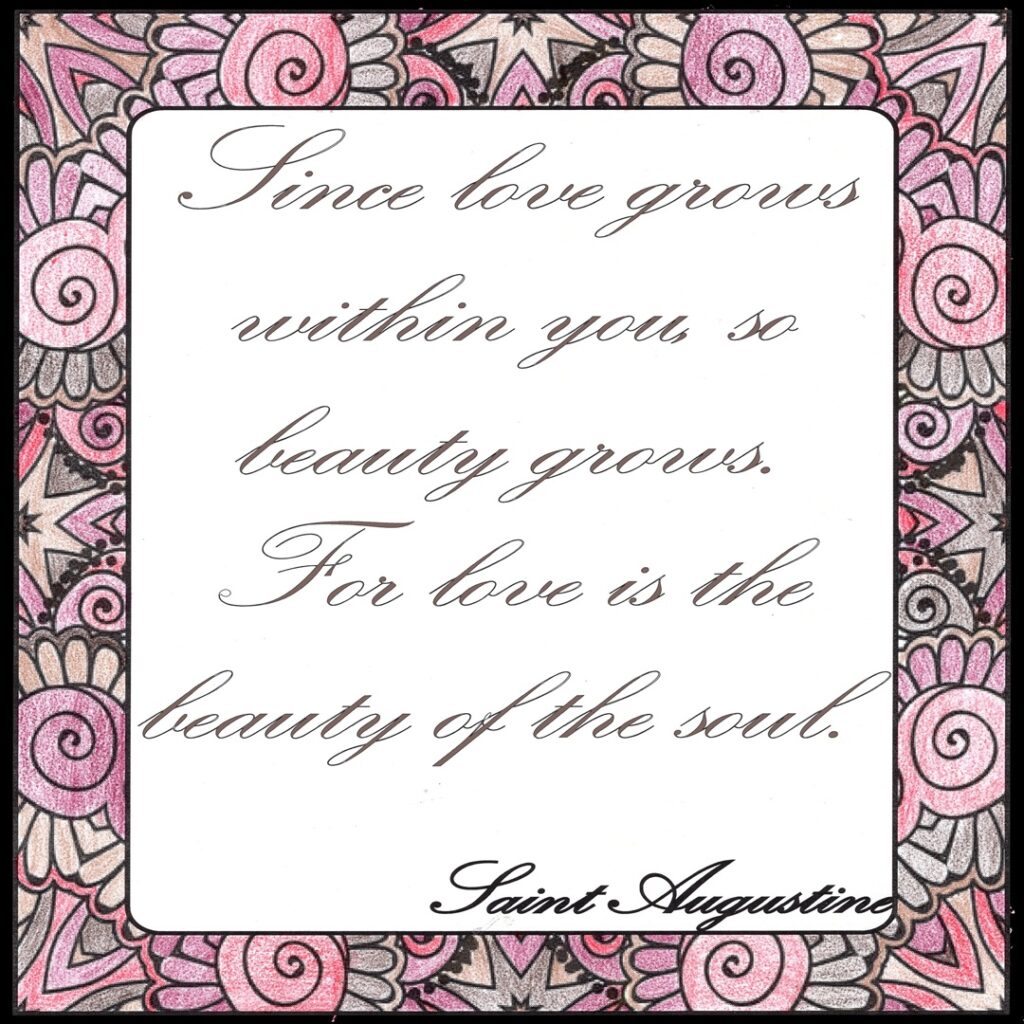 Since love grows
within you, so
beauty grows.
For love is the
beauty of the soul.
Saint Augustine